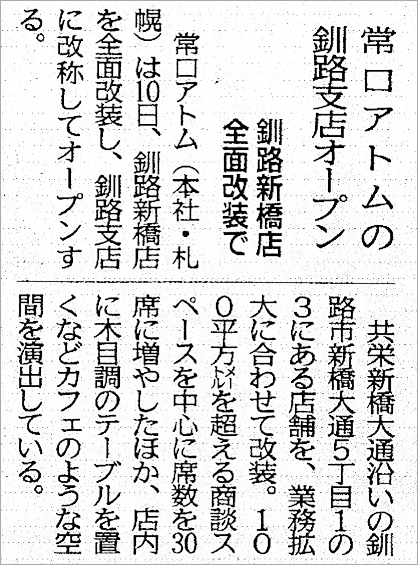 常口アトムの
釧路支店オープン
釧路新橋店
全面改装で
常口アトム（本社・札
幌）は10日、釧路新橋店
を全面改装し、釧路支店
に改称してオープンす
る。
共栄新橋大通沿いの釧
路市新橋大通５丁目１の
３にある店舗を、業務拡
大に合わせて改装。１０
０平方㍍を超える商談ス
ペースを中心に席数を30
席に増やしたほか、店内
に木目調のテーブルを置
くなどカフェのような空
間を演出している。